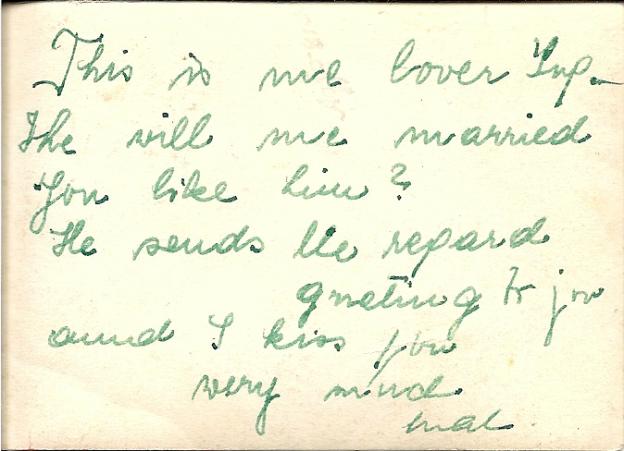 This is me lover
The will me married
You like him?
He sends the regard
grueting to you
aund I kiss you
very mud